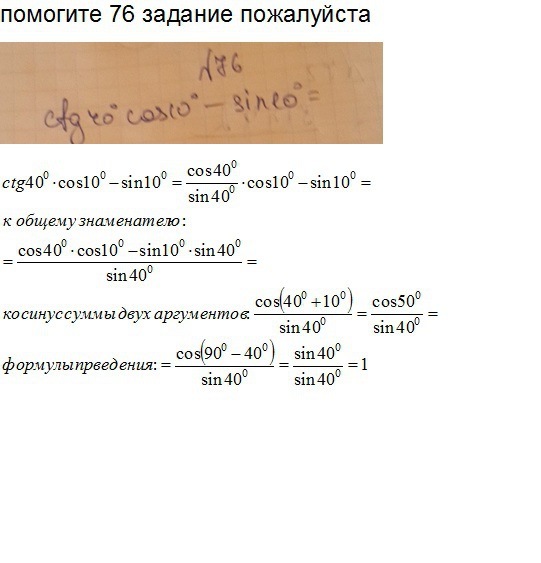 помогите 76 задание пожалуйста
№76
ctg40° cos10° − sin10° =
ctg40⁰·cos10⁰−sin10⁰ = cos40⁰/sin40⁰·cos10⁰−sin10⁰ =
к общему знаменателю:
= (cos40⁰·cos10⁰−sin10⁰·sin40⁰)/sin40⁰ =
косинус суммы двух аргументов: cos(40⁰+10⁰)/sin40⁰ = cos50⁰/sin40⁰ =
формулы прведения: = cos(90⁰−40⁰)/sin40⁰ = sin40⁰/sin40⁰ = 1